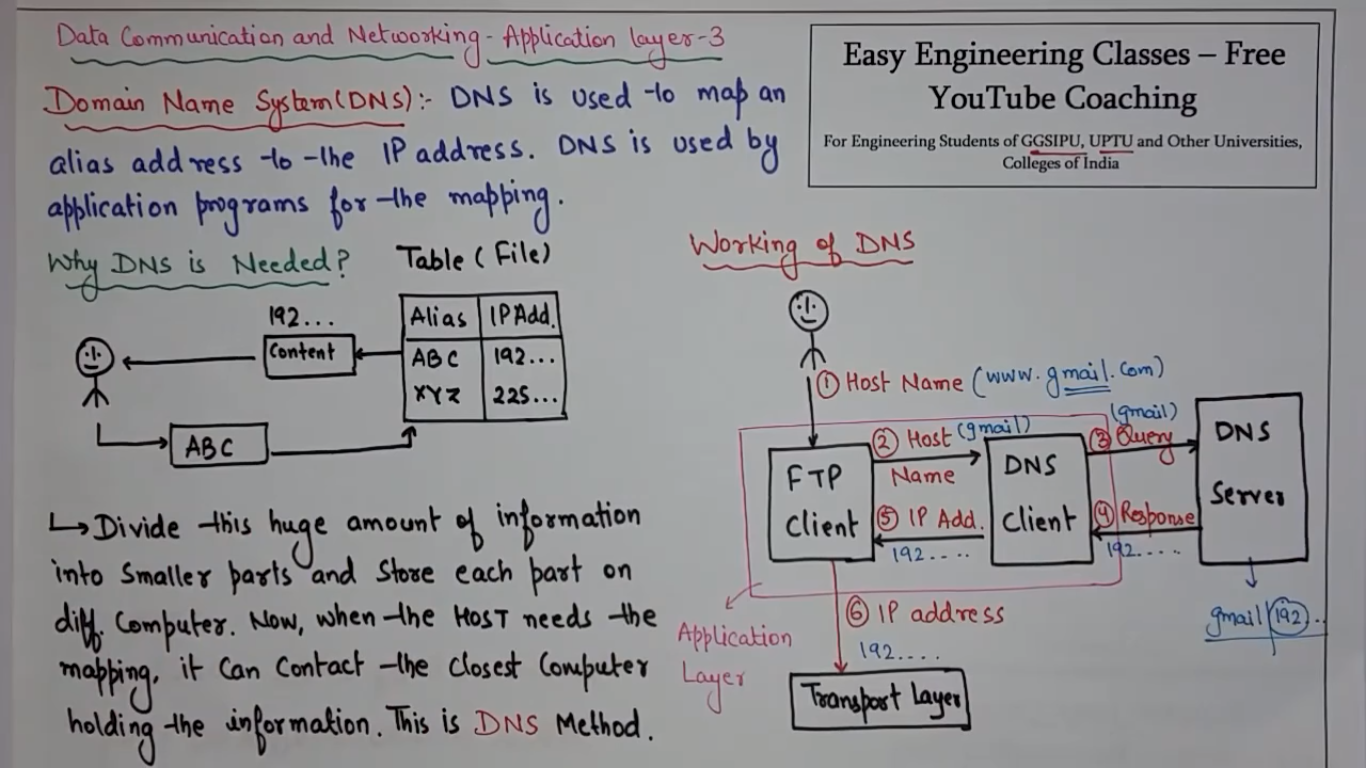 Data Communication and Networking - Application layer-3
Easy Engineering Classes – Free
YouTube Coaching
For Engineering Students of GGSIPU, UPTU and Other Universities,
Colleges of India
Domain Name System (DNS):- DNS is used to map an
alias address to the IP address. DNS is used by
application programs for the mapping.
Why DNS is Needed?
Table (File)
192...
Content
Alias IP Add.
ABC 192...
XYZ 225...
ABC
↳ Divide this huge amount of information
into smaller parts and store each part on
diff. Computer. Now, when the HOST needs the
mapping, it can contact the closest computer
holding the information. This is DNS Method.
Working of DNS
① Host Name (www.gmail.com)
FTP
Client
② Host (gmail)
Name
⑤ IP Add.
192....
DNS
Client
(gmail)
③ Query
④ Response
192.....
DNS
Server
gmail/192..
⑥ IP address
192....
Application
Layer
Transport Layer